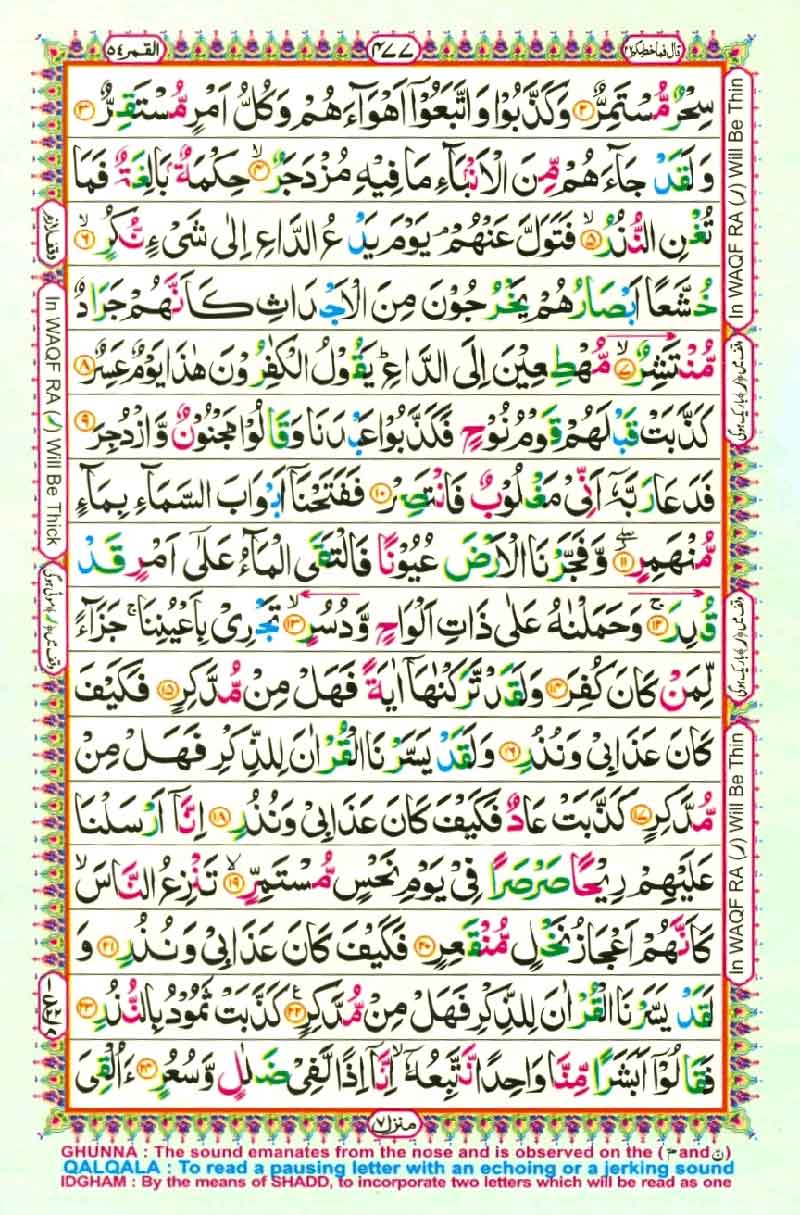 قال فما خطبكم ٢٧ ٤٧٧ القمر ٥٤
سِحْرٌ مُّسْتَمِرٌّ ۝٢ وَكَذَّبُوْا وَاتَّبَعُوْٓا اَهْوَآءَهُمْ وَكُلُّ اَمْرٍ مُّسْتَقِرٌّ ۝٣
وَلَقَدْ جَآءَهُمْ مِّنَ الْاَنْۢبَآءِ مَا فِيْهِ مُزْدَجَرٌ ۝٤ۙ حِكْمَةٌۢ بَالِغَةٌ فَمَا
تُغْنِ النُّذُرُ ۝٥ۙ فَتَوَلَّ عَنْهُمْ يَوْمَ يَدْعُ الدَّاعِ اِلٰى شَيْءٍ نُّكُرٍ ۝٦ۙ
خُشَّعًا اَبْصَارُهُمْ يَخْرُجُوْنَ مِنَ الْاَجْدَاثِ كَاَنَّهُمْ جَرَادٌ
مُّنْتَشِرٌ ۝٧ۙ مُّهْطِعِيْنَ اِلَى الدَّاعِ ؕ يَقُوْلُ الْكٰفِرُوْنَ هٰذَا يَوْمٌ عَسِرٌ ۝٨
كَذَّبَتْ قَبْلَهُمْ قَوْمُ نُوْحٍ فَكَذَّبُوْا عَبْدَنَا وَقَالُوْا مَجْنُوْنٌ وَّازْدُجِرَ ۝٩
فَدَعَا رَبَّهٗٓ اَنِّيْ مَغْلُوْبٌ فَانْتَصِرْ ۝١٠ فَفَتَحْنَآ اَبْوَابَ السَّمَآءِ بِمَآءٍ
مُّنْهَمِرٍ ۝١١ وَّفَجَّرْنَا الْاَرْضَ عُيُوْنًا فَالْتَقَى الْمَآءُ عَلٰٓى اَمْرٍ قَدْ
قُدِرَ ۝١٢ۚ وَحَمَلْنٰهُ عَلٰى ذَاتِ اَلْوَاحٍ وَّدُسُرٍ ۝١٣ۙ تَجْرِيْ بِاَعْيُنِنَا ۚ جَزَآءً
لِّمَنْ كَانَ كُفِرَ ۝١٤ وَلَقَدْ تَّرَكْنٰهَآ اٰيَةً فَهَلْ مِنْ مُّدَّكِرٍ ۝١٥ فَكَيْفَ
كَانَ عَذَابِيْ وَنُذُرِ ۝١٦ وَلَقَدْ يَسَّرْنَا الْقُرْاٰنَ لِلذِّكْرِ فَهَلْ مِنْ
مُّدَّكِرٍ ۝١٧ كَذَّبَتْ عَادٌ فَكَيْفَ كَانَ عَذَابِيْ وَنُذُرِ ۝١٨ اِنَّآ اَرْسَلْنَا
عَلَيْهِمْ رِيْحًا صَرْصَرًا فِيْ يَوْمِ نَحْسٍ مُّسْتَمِرٍّ ۝١٩ۙ تَنْزِعُ النَّاسَ ۙ
كَاَنَّهُمْ اَعْجَازُ نَخْلٍ مُّنْقَعِرٍ ۝٢٠ فَكَيْفَ كَانَ عَذَابِيْ وَنُذُرِ ۝٢١ وَ
لَقَدْ يَسَّرْنَا الْقُرْاٰنَ لِلذِّكْرِ فَهَلْ مِنْ مُّدَّكِرٍ ۝٢٢ كَذَّبَتْ ثَمُوْدُ بِالنُّذُرِ ۝٢٣
فَقَالُوْٓا اَبَشَرًا مِّنَّا وَاحِدًا نَّتَّبِعُهٗٓ ۙ اِنَّآ اِذًا لَّفِيْ ضَلٰلٍ وَّسُعُرٍ ۝٢٤ ءَاُلْقِيَ
منزل ٧
In WAQF RA (ر) Will Be Thin
وقف میں (ر) باریک ہوگی
In WAQF RA (ر) Will Be Thin
وقف میں (ر) باریک ہوگی
In WAQF RA (ر) Will Be Thin
وقف لازم
In WAQF RA (ر) Will Be Thick
وقف میں (ر) موٹی ہوگی
GHUNNA : The sound emanates from the nose and is observed on the (م and ن)
QALQALA : To read a pausing letter with an echoing or a jerking sound
IDGHAM : By the means of SHADD, to incorporate two letters which will be read as one